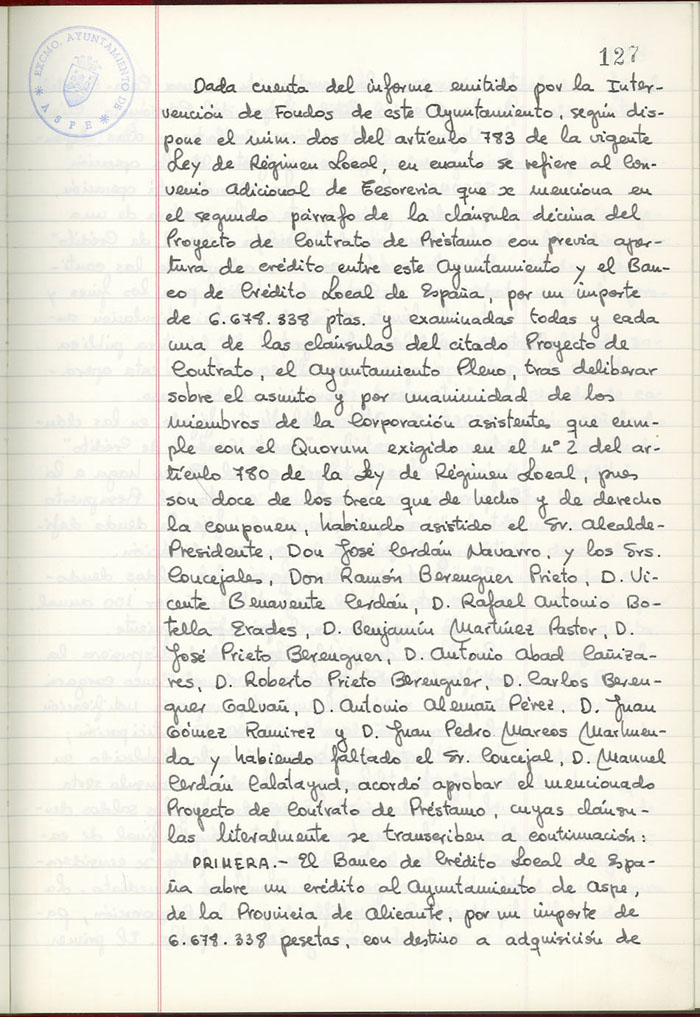 127
EXCMO. AYUNTAMIENTO DE
* ASPE *
Dada cuenta del informe emitido por la Inter-
vención de Fondos de este Ayuntamiento, según dis-
pone el núm. dos del artículo 783 de la vigente
Ley de Régimen Local, en cuanto se refiere al Con-
venio Adicional de Tesorería que se menciona en
el segundo párrafo de la cláusula décima del
Proyecto de Contrato de Préstamo con previa aper-
tura de crédito entre este Ayuntamiento y el Ban-
co de Crédito Local de España, por un importe
de 6.678.338 ptas. y examinadas todas y cada
una de las cláusulas del citado Proyecto de
Contrato, el Ayuntamiento Pleno, tras deliberar
sobre el asunto y por unanimidad de los
miembros de la Corporación asistentes que cum-
ple con el Quorum exigido en el nº 2 del ar-
tículo 780 de la Ley de Régimen Local, pues
son doce de los trece que de hecho y de derecho
la componen, habiendo asistido el Sr. Alcalde-
Presidente, Don José Cerdán Navarro, y los Srs.
Concejales, Don Ramón Berenguer Prieto, D. Vi-
cente Benavente Cerdán, D. Rafael Antonio Bo-
tella Erades, D. Benjamín Martínez Pastor, D.
José Prieto Berenguer, D. Antonio Abad Cañiza-
res, D. Roberto Prieto Berenguer, D. Carlos Beren-
guer Galvañ, D. Antonio Alemañ Pérez, D. Juan
Gómez Ramirez y D. Juan Pedro Marcos Marhuen-
da y habiendo faltado el Sr. Concejal, D. Manuel
Cerdán Calatayud, acordó aprobar el mencionado
Proyecto de Contrato de Préstamo, cuyas cláusu-
las literalmente se transcriben a continuación:
PRIMERA.- El Banco de Crédito Local de Espa-
ña abre un crédito al Ayuntamiento de Aspe,
de la Provincia de Alicante, por un importe de
6.678.338 pesetas, con destino a adquisición de